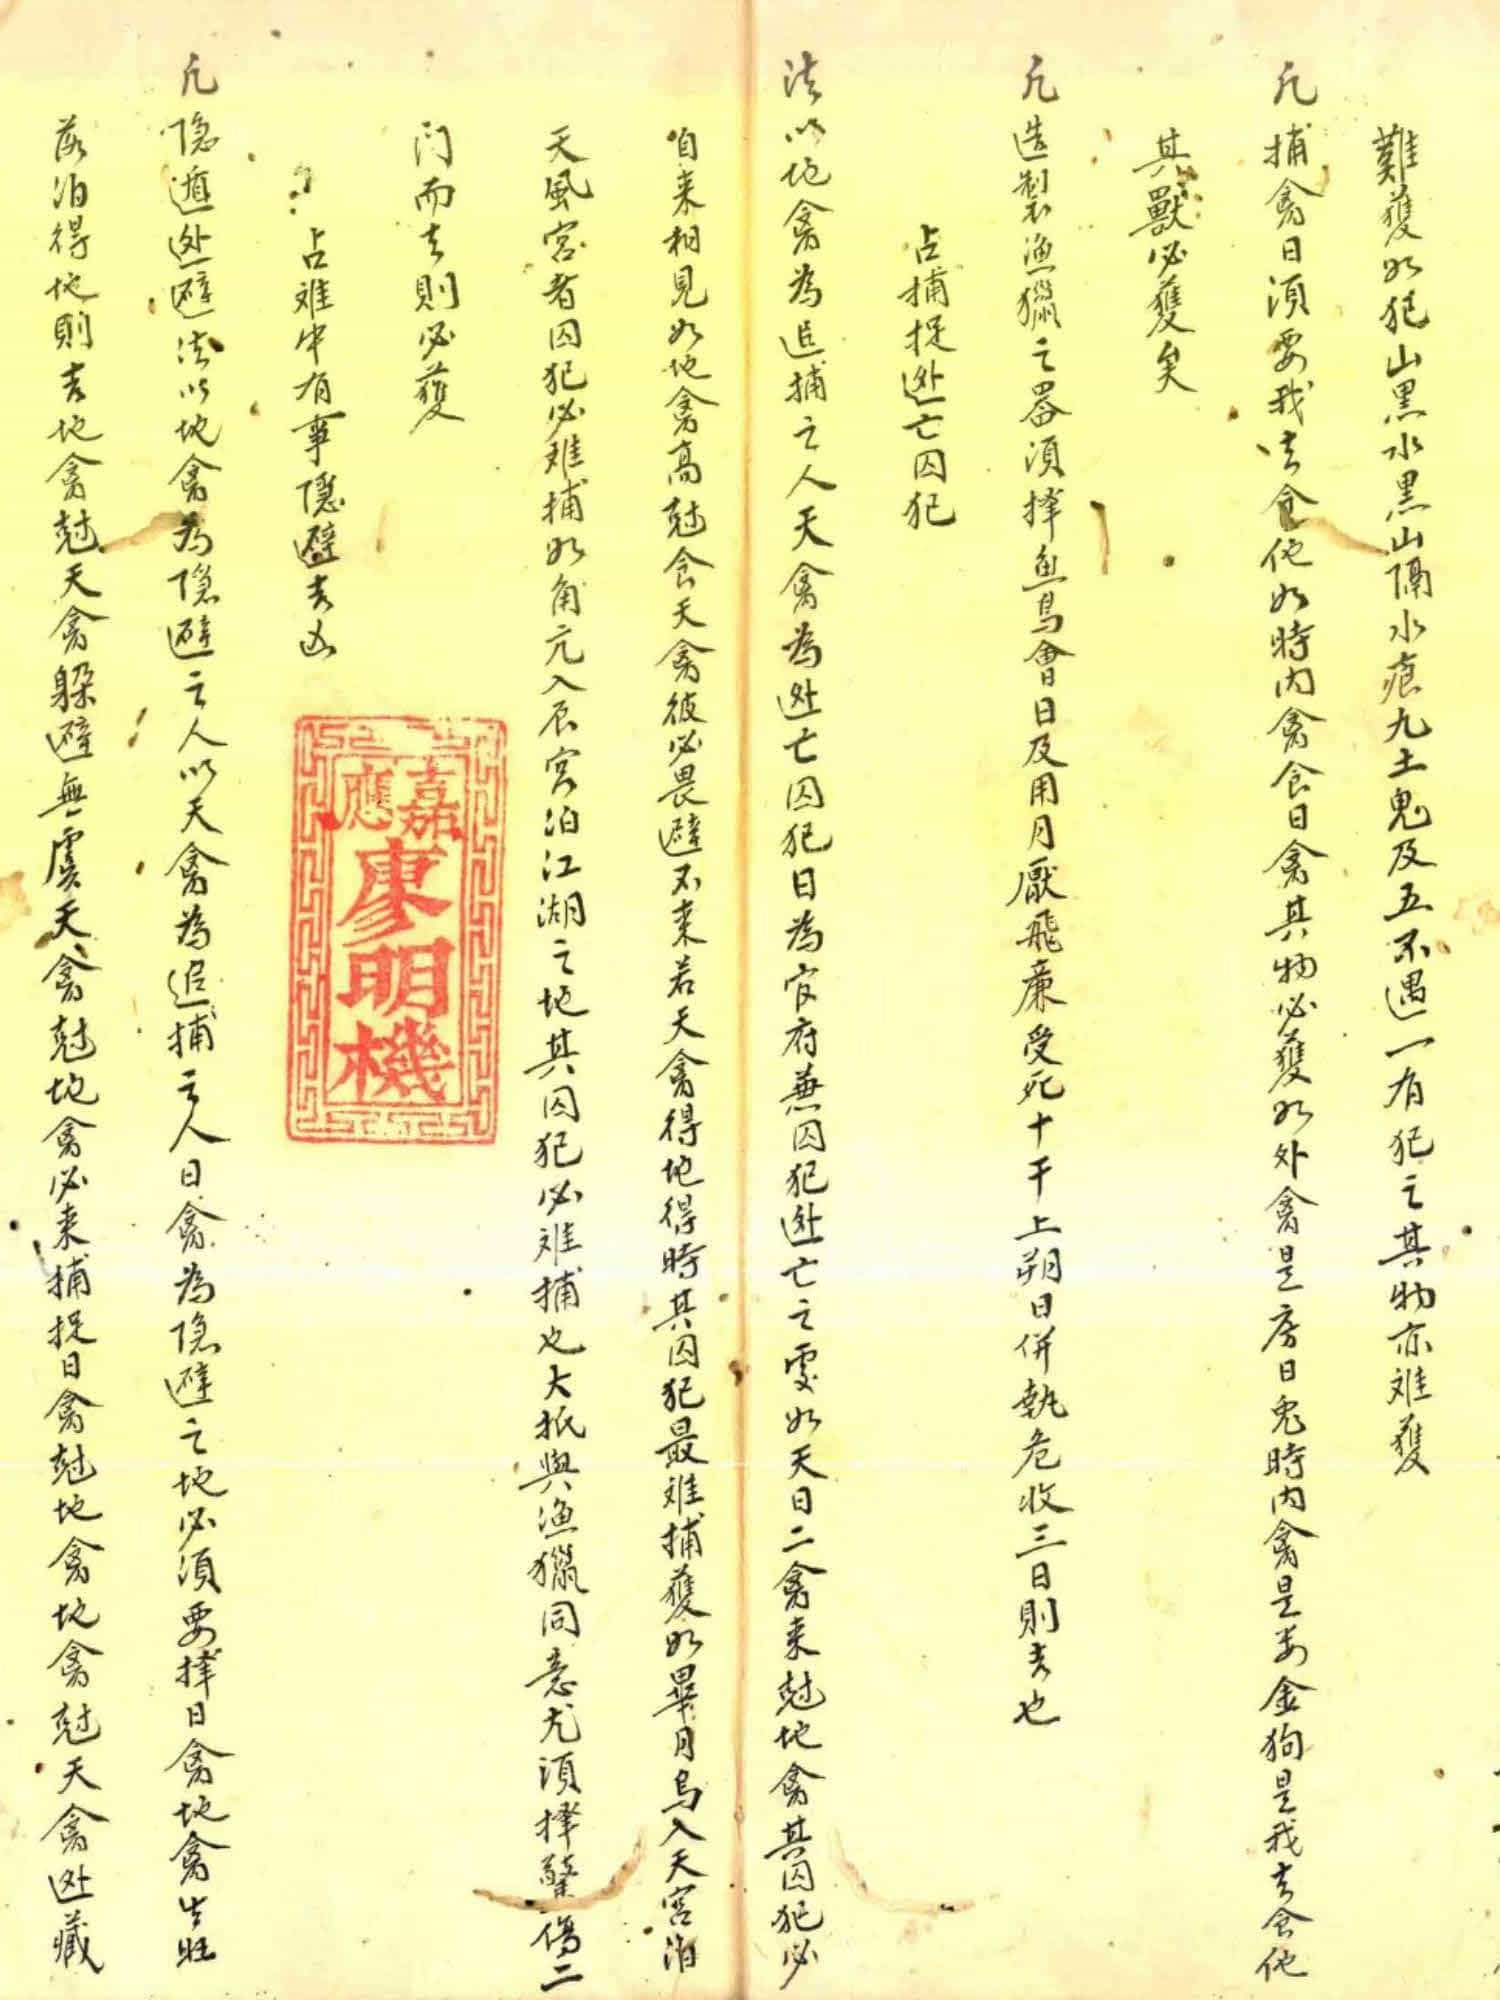 難獲如犯山黑水黑山隔水痕九土鬼及五不遇一有犯之其物亦难獲
凡捕禽日須要我去食他如時内禽食日禽其物必獲如外禽是房日兔時内禽是婁金狗是我去食他
其獸必獲矣
凡造製漁獵之器須择魚鳥會日及用月厭飛廉受死十干上朔日併執危收三日則吉也
占捕捉迯亡囚犯
法以地禽為追捕之人天禽為迯亡囚犯日為官府兼囚犯迯亡之處如天日二禽来尅地禽其囚犯必
自来相見如地禽高尅食天禽彼必畏避不来若天禽得地得時其囚犯最难捕獲如畢月烏入天宫泊
天風宫者囚犯必难捕如角亢入辰宫泊江湖之地其囚犯必难捕也大抵與漁獵同意尤須择 傷二
门而去則必獲
占难中有事隱避吉凶
凡隐遁迯避法以地禽為隐避之人以天禽為追捕之人日禽為隐避之地必須要择日禽地禽生旺
落泊得地則吉地禽尅天禽躲避無虞天禽尅地禽必来捕捉日禽尅地禽地禽尅天禽迯藏
嘉應
廖明機